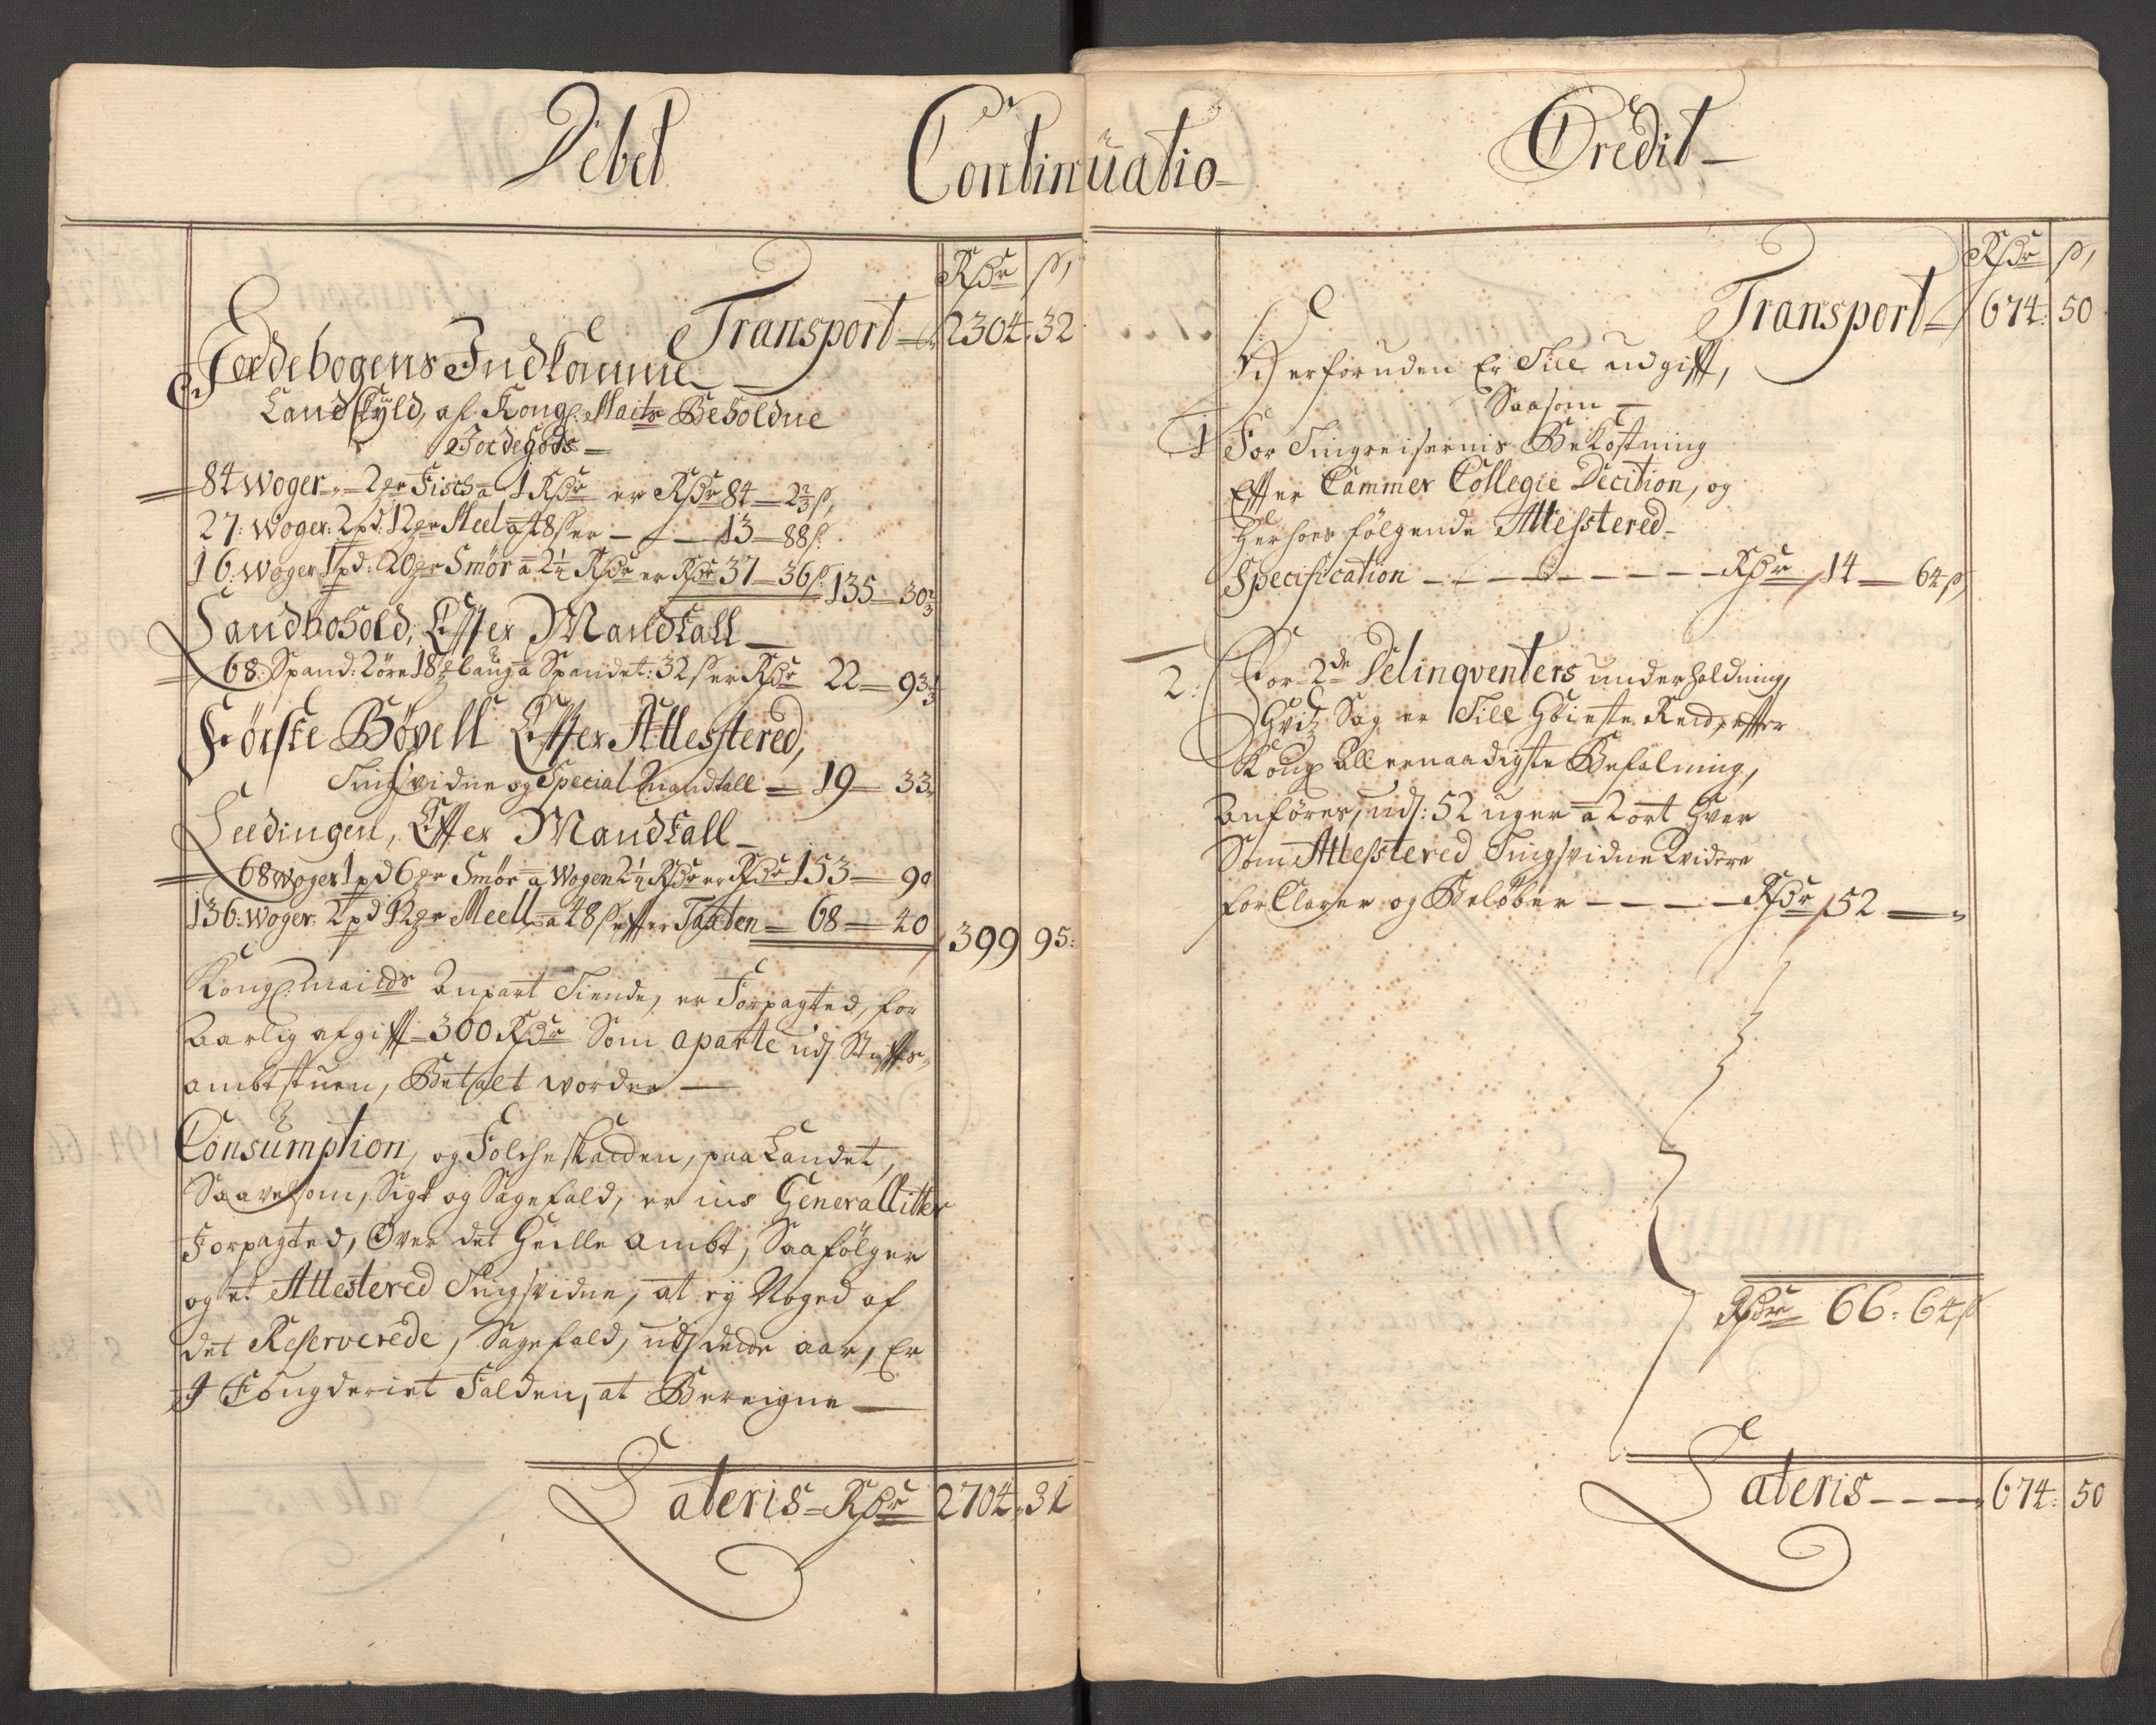 Debet Continuatio Credit
Rdr ß,
Transport 2304: 32
Jordebogens Indkomme
Landskyld, af Kongl: Maits Beholdne
Jordegods
84 Woger - 2 pr Fisch a 1 Rdr er Rdr 84 - 2 2/3 ß,
27: Woger: 2 pd: 12 pr Meel a 48 ß er - - 13 - 88 ß:
16: Woger 1 pd: 20 pr Smör a 2 1/4 Rdr er Rdr 37 - 36 ß: 135 - 30 2/3
Landbohold, Effter Mandtall
68: Spand: 2 öre 18 laug a Spandet: 32 ß er Rdr 22 - 93 1/3
Förste Bövell Effter Attesstered,
Tingsvidne og Special Mandtall - 19 - 33
Leedingen, Effter Mandtall
68 Woger 1 pd 6 pr Smör a Wogen 2 1/4 Rdr er Rdr 153 - 90
136: Woger: 2 pd 12 pr Meell a 48 ß effter Taxten - 68 - 40 399 95:
Kongl: Maits Anpart Tiende, er Forpagted, for
Aarlig afgifft 300 Rdr Som aparte udj Stiffts
ambtstuen, Betalt worder
Consumption, og Folcheskatden, paa Landet,
Saavelsom, Sigt og Sagefald, er ins Generalliter
Forpagted, Över det Heille Ambt, Saa fölger
og et Attestered Tingsvidne, at ey Noged af
det Reserverede, Sagefald, udj dette aar, Er
I Fougderiet Falden, at Bereigne
Lateris Rdr 2704: 31
Rdr ß,
Transport 674: 50
Derforuden Er Till udgifft,
Saasom
1 For Tingreisernis Bekostning
Effter Cammer Collegie Decition, og
Herhos fölgende Attesstered
Specification - - - - Rdr 14 - 64 ß,
2: For 2de Delinqventers underholdning,
Hvis Sag er Till Höieste Rett, effter
Kongl Allernaadigste Befalning,
Anföres, udj: 52 uger a 2 ort Hver
Som Attesstered Tingsvidne Widere
forClarer og Belöber - - - - Rdr 52 -
Rdr 66: 64 ß
Lateris - - - 674: 50